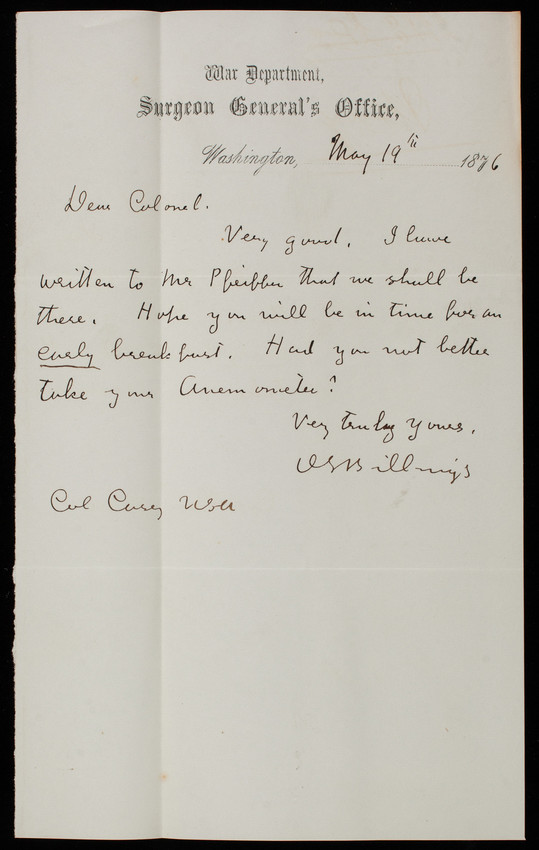 War Department,
Surgeon General's Office,
Washington, May 19th 1876
Dear Colonel.
Very good. I have
written to Mr Pfeiffer that we shall be
there. Hope you will be in time for an
early breakfast. Had you not better
take your Anemometer?
Very truly yours,
JS Billings
Col Casey USA